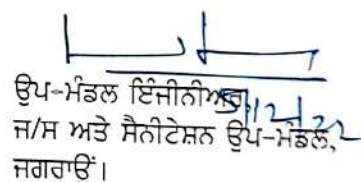 ਉਪ-ਮੰਡਲ ਇੰਜੀਨੀਅਰ,
ਜ/ਸ ਅਤੇ ਸੈਨੀਟੇਸ਼ਨ ਉਪ-ਮੰਡਲ,
ਜਗਰਾਉਂ।